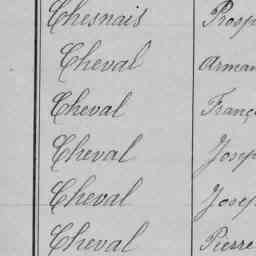 Chesnais Prosp
Cheval Arman
Cheval Franç
Cheval Josep
Cheval Josep
Cheval Pierre